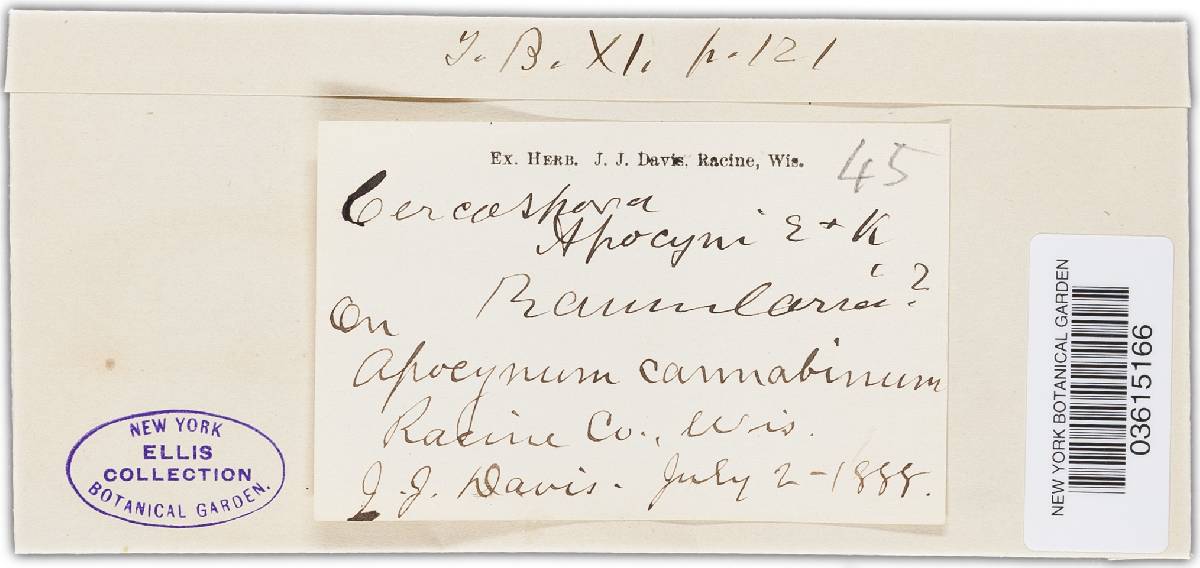 J. B. XI. p. 121
Ex. Herb. J. J. Davis, Racine, Wis.
45
Cercospora
Apocyni E + K
Ramularia?
On
Apocynum cannabinum
Racine Co., Wis.
J. J. Davis. July 2-1888.
NEW YORK
ELLIS
COLLECTION
BOTANICAL GARDEN.
NEW YORK BOTANICAL GARDEN
03615166